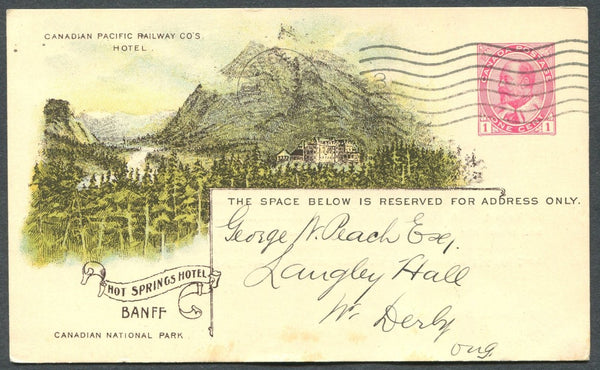 CANADIAN PACIFIC RAILWAY CO'S
HOTEL.
CANADA POSTAGE
1 ONE CENT 1
THE SPACE BELOW IS RESERVED FOR ADDRESS ONLY.
George N. Peach Esq.
Langley Hall
W. Derby
Eng
HOT SPRINGS HOTEL
BANFF
CANADIAN NATIONAL PARK